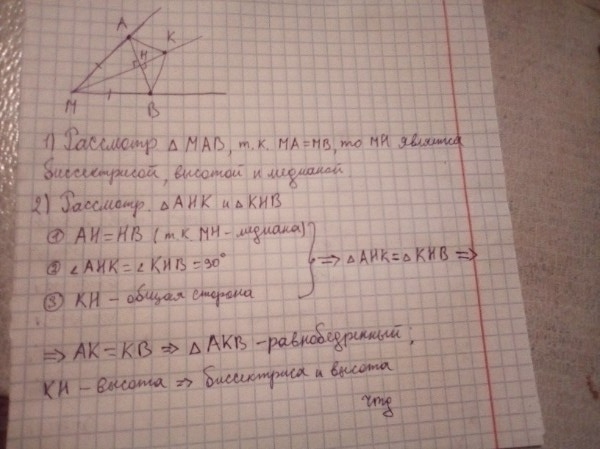 A
K
H
M
B
1) Рассмотр. △ MAB, т.к. MA=MB, то MH является
биссектрисой, высотой и медианой.
2) Рассмотр. △AHK и △KHB
① AH=HB (т.к. MH-медиана)
② ∠AHK=∠KHB=90°
③ KH - общая сторона
⇒ △AHK=△KHB ⇒
⇒ AK=KB ⇒ △AKB -равнобедренный;
KH - высота ⇒ биссектриса и высота
чтд